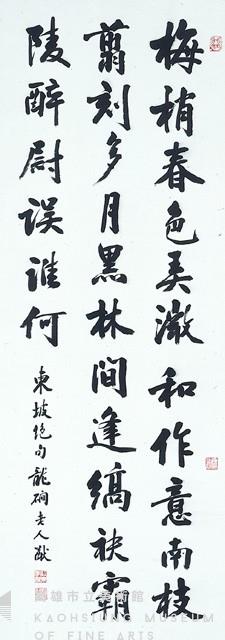 梅梢春色弄微和作意南枝
翦刻多月黑林間逢縞袂霸
陵醉尉誤誰何
東坡絕句龍磵老人
高雄市立美術館
KAOHSIUNG MUSEUM
OF FINE ARTS